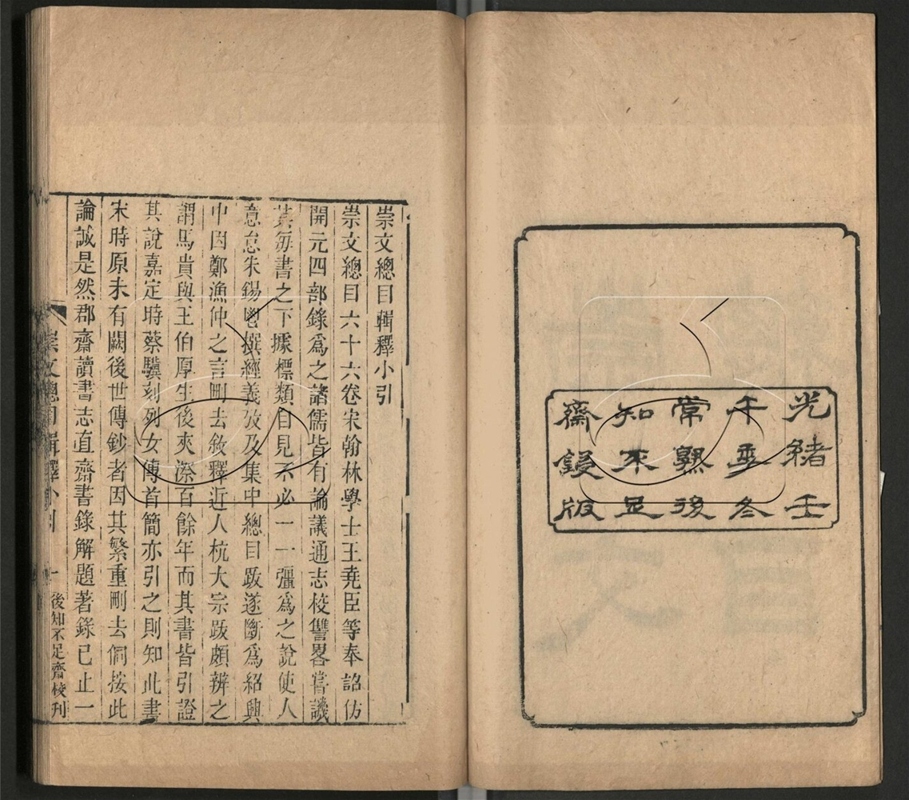 光緒壬
午季冬
常熟後
知不足
齋鋟版
崇文總目輯釋小引
崇文總目六十六卷宋翰林學士王堯臣等奉詔仿
開元四部錄爲之諸儒皆有論議通志校讐畧嘗譏
其每書之下據標類自見不必一一彊爲之說使人
意怠朱錫鬯撰經義攷及集中總目跋遂斷爲紹興
中因鄭漁仲之言刪去敘釋近人杭大宗跋頗辨之
謂馬貴與王伯厚生後夾漈百餘年而其書皆引證
其說嘉定時蔡驥刻列女傳首簡亦引之則知此書
宋時原未有闕後世傳鈔者因其繁重刪去侗按此
論誠是然郡齋讀書志直齋書錄解題著錄已止一
崇文總目輯釋小引 一 後知不足齋校刊